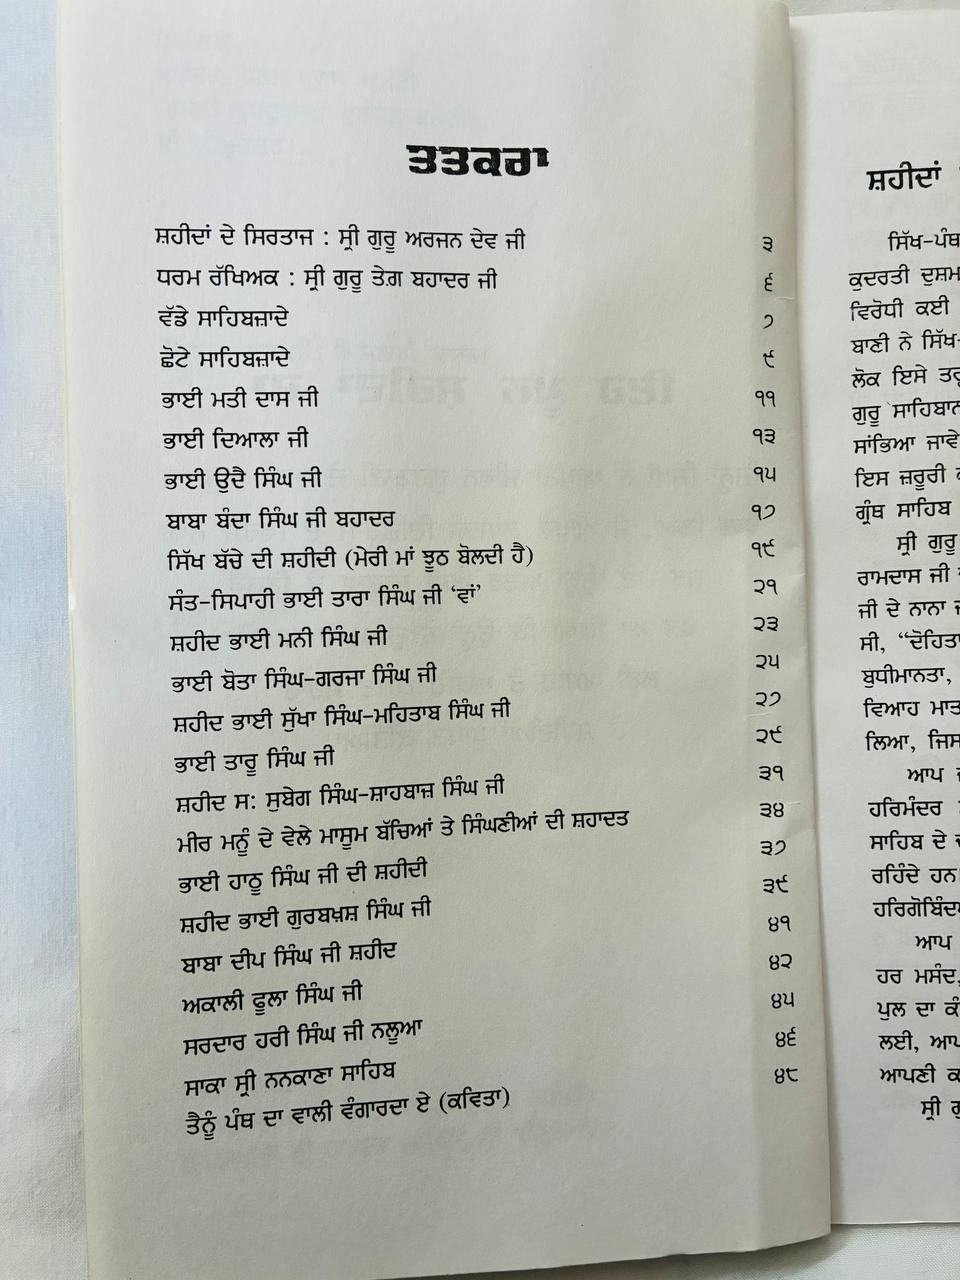 ਤਤਕਰਾ
ਸ਼ਹੀਦਾਂ ਦੇ ਸਿਰਤਾਜ : ਸ੍ਰੀ ਗੁਰੂ ਅਰਜਨ ਦੇਵ ਜੀ ੩
ਧਰਮ ਰੱਖਿਅਕ : ਸ੍ਰੀ ਗੁਰੂ ਤੇਗ ਬਹਾਦਰ ਜੀ ੬
ਵੱਡੇ ਸਾਹਿਬਜ਼ਾਦੇ ੭
ਛੋਟੇ ਸਾਹਿਬਜ਼ਾਦੇ ੯
ਭਾਈ ਮਤੀ ਦਾਸ ਜੀ ੧੧
ਭਾਈ ਦਿਆਲਾ ਜੀ ੧੩
ਭਾਈ ਉਦੈ ਸਿੰਘ ਜੀ ੧੫
ਬਾਬਾ ਬੰਦਾ ਸਿੰਘ ਜੀ ਬਹਾਦਰ ੧੭
ਸਿੱਖ ਬੱਚੇ ਦੀ ਸ਼ਹੀਦੀ (ਮੇਰੀ ਮਾਂ ਝੂਠ ਬੋਲਦੀ ਹੈ) ੧੯
ਸੰਤ-ਸਿਪਾਹੀ ਭਾਈ ਤਾਰਾ ਸਿੰਘ ਜੀ ‘ਵਾਂ’ ੨੧
ਸ਼ਹੀਦ ਭਾਈ ਮਨੀ ਸਿੰਘ ਜੀ ੨੩
ਭਾਈ ਬੋਤਾ ਸਿੰਘ-ਗਰਜਾ ਸਿੰਘ ਜੀ ੨੫
ਸ਼ਹੀਦ ਭਾਈ ਸੁੱਖਾ ਸਿੰਘ-ਮਹਿਤਾਬ ਸਿੰਘ ਜੀ ੨੭
ਭਾਈ ਤਾਰੂ ਸਿੰਘ ਜੀ ੨੯
ਸ਼ਹੀਦ ਸ: ਸੁਬੇਗ ਸਿੰਘ-ਸ਼ਾਹਬਾਜ਼ ਸਿੰਘ ਜੀ ੩੧
ਮੀਰ ਮਨੂੰ ਦੇ ਵੇਲੇ ਮਾਸੂਮ ਬੱਚਿਆਂ ਤੇ ਸਿੰਘਣੀਆਂ ਦੀ ਸ਼ਹਾਦਤ ੩੪
ਭਾਈ ਹਾਠੂ ਸਿੰਘ ਜੀ ਦੀ ਸ਼ਹੀਦੀ ੩੭
ਸ਼ਹੀਦ ਭਾਈ ਗੁਰਬਖ਼ਸ਼ ਸਿੰਘ ਜੀ ੩੯
ਬਾਬਾ ਦੀਪ ਸਿੰਘ ਜੀ ਸ਼ਹੀਦ ੪੧
ਅਕਾਲੀ ਫੂਲਾ ਸਿੰਘ ਜੀ ੪੨
ਸਰਦਾਰ ਹਰੀ ਸਿੰਘ ਜੀ ਨਲੂਆ ੪੫
ਸਾਕਾ ਸ੍ਰੀ ਨਨਕਾਣਾ ਸਾਹਿਬ ੪੬
ਤੈਨੂੰ ਪੰਥ ਦਾ ਵਾਲੀ ਵੰਗਾਰਦਾ ਏ (ਕਵਿਤਾ) ੪੮
ਸ਼ਹੀਦਾਂ
ਸਿੱਖ-ਪੰਥ
ਕੁਦਰਤੀ
ਵਿਰੋਧੀ ਕਈ
ਬਾਣੀ ਨੇ ਸਿੱਖ-
ਲੋਕ ਇਸੇ
ਗੁਰੂ
ਸਾਂਭਿਆ ਜਾਵੇ
ਇਸ ਜ਼ਰੂਰੀ
ਗ੍ਰੰਥ ਸਾਹਿਬ
ਸ੍ਰੀ ਗੁਰੂ
ਰਾਮਦਾਸ ਜੀ
ਜੀ ਦੇ ਨਾਨਾ
ਸੀ, “ਦੋਹਿਤਾ
ਬੁਧੀਮਾਨਤਾ,
ਵਿਆਹ ਮਾਤ
ਲਿਆ, ਜਿਸ
ਆਪ
ਹਰਿਮੰਦਰ
ਸਾਹਿਬ ਦੇ
ਰਹਿੰਦੇ ਹਨ
ਆਪ
ਹਰ ਮਸੰਦ,
ਪੁਲ ਦਾ
ਲਈ, ਆਪ
ਆਪਣੀ
ਸ੍ਰੀ